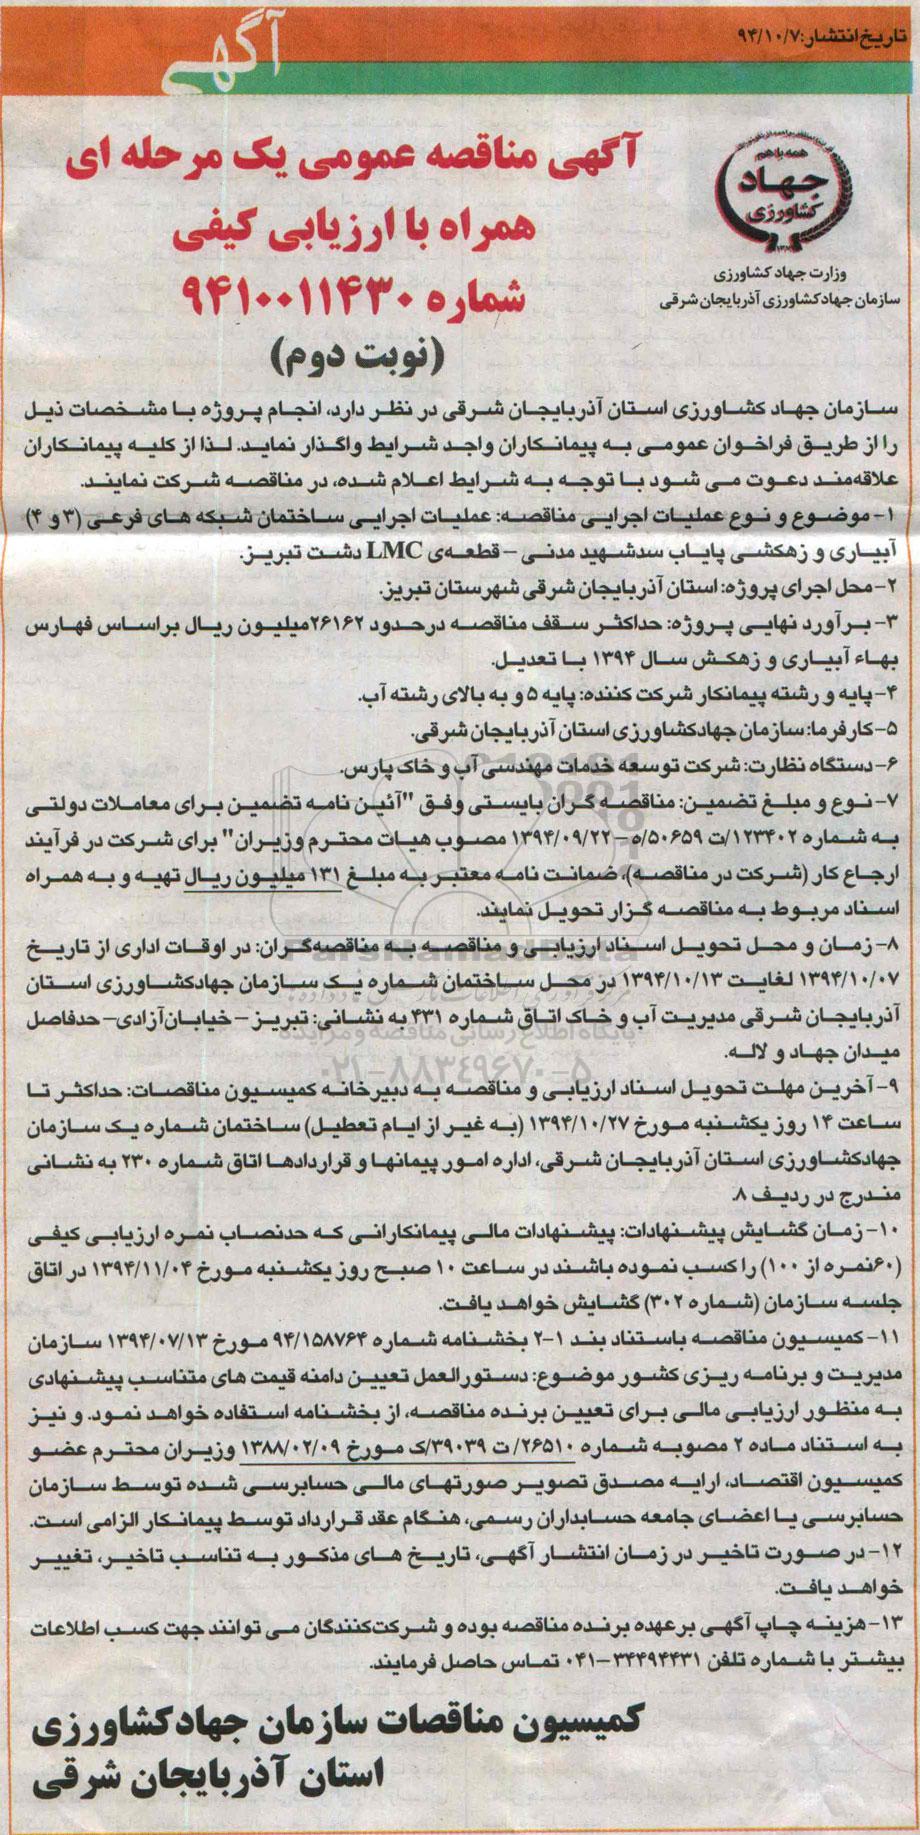 تاریخ انتشار: ۹۴/۱۰/۷
آگهی
همه با هم
جهاد
کشاورزی
وزارت جهاد کشاورزی
سازمان جهاد کشاورزی آذربایجان شرقی
آگهی مناقصه عمومی یک مرحله ای
همراه با ارزیابی کیفی
شماره ۹۴۱۰۰۱۱۴۳۰
(نوبت دوم)
سازمان جهاد کشاورزی استان آذربایجان شرقی در نظر دارد، انجام پروژه با مشخصات ذیل
را از طریق فراخوان عمومی به پیمانکاران واجد شرایط واگذار نماید. لذا از کلیه پیمانکاران
علاقه‌مند دعوت می شود با توجه به شرایط اعلام شده، در مناقصه شرکت نمایند.
۱- موضوع و نوع عملیات اجرایی مناقصه: عملیات اجرایی ساختمان شبکه های فرعی (۳ و ۴)
آبیاری و زهکشی پایاب سدشهید مدنی – قطعه‌ی LMC دشت تبریز.
۲- محل اجرای پروژه: استان آذربایجان شرقی شهرستان تبریز.
۳- برآورد نهایی پروژه: حداکثر سقف مناقصه درحدود ۲۶۱۶۲میلیون ریال براساس فهارس
بهاء آبیاری و زهکش سال ۱۳۹۴ با تعدیل.
۴- پایه و رشته پیمانکار شرکت کننده: پایه ۵ و به بالای رشته آب.
۵- کارفرما: سازمان جهادکشاورزی استان آذربایجان شرقی.
۶- دستگاه نظارت: شرکت توسعه خدمات مهندسی آب و خاک پارس.
۷- نوع و مبلغ تضمین: مناقصه گران بایستی وفق "آئین نامه تضمین برای معاملات دولتی
به شماره ۱۲۳۴۰۲/ت ۵۰۶۵۹/ه – ۱۳۹۴/۰۹/۲۲ مصوب هیات محترم وزیران" برای شرکت در فرآیند
ارجاع کار (شرکت در مناقصه)، ضمانت نامه معتبر به مبلغ ۱۳۱ میلیون ریال تهیه و به همراه
اسناد مربوط به مناقصه گزار تحویل نمایند.
۸- زمان و محل تحویل اسناد ارزیابی و مناقصه به مناقصه‌گران: در اوقات اداری از تاریخ
۱۳۹۴/۱۰/۰۷ لغایت ۱۳۹۴/۱۰/۱۳ در محل ساختمان شماره یک سازمان جهادکشاورزی استان
آذربایجان شرقی مدیریت آب و خاک اتاق شماره ۴۳۱ به نشانی: تبریز – خیابان آزادی – حدفاصل
میدان جهاد و لاله.
۹- آخرین مهلت تحویل اسناد ارزیابی و مناقصه به دبیرخانه کمیسیون مناقصات: حداکثر تا
ساعت ۱۴ روز یکشنبه مورخ ۱۳۹۴/۱۰/۲۷ (به غیر از ایام تعطیل) ساختمان شماره یک سازمان
جهادکشاورزی استان آذربایجان شرقی، اداره امور پیمانها و قراردادها اتاق شماره ۲۳۰ به نشانی
مندرج در ردیف ۸.
۱۰- زمان گشایش پیشنهادات: پیشنهادات مالی پیمانکارانی که حدنصاب نمره ارزیابی کیفی
(۶۰نمره از ۱۰۰) را کسب نموده باشند در ساعت ۱۰ صبح روز یکشنبه مورخ ۱۳۹۴/۱۱/۰۴ در اتاق
جلسه سازمان (شماره ۳۰۲) گشایش خواهد یافت.
۱۱- کمیسیون مناقصه باستناد بند ۱-۲ بخشنامه شماره ۹۴/۱۵۸۷۶۴ مورخ ۱۳۹۴/۰۷/۱۳ سازمان
مدیریت و برنامه ریزی کشور موضوع: دستورالعمل تعیین دامنه قیمت های متناسب پیشنهادی
به منظور ارزیابی مالی برای تعیین برنده مناقصه، از بخشنامه استفاده خواهد نمود. و نیز
به استناد ماده ۲ مصوبه شماره ۲۶۵۱۰/ ت ۳۹۰۳۹/ک مورخ ۱۳۸۸/۰۲/۰۹ وزیران محترم عضو
کمیسیون اقتصاد، ارایه مصدق تصویر صورتهای مالی حسابرسی شده توسط سازمان
حسابرسی یا اعضای جامعه حسابداران رسمی، هنگام عقد قرارداد توسط پیمانکار الزامی است.
۱۲- در صورت تاخیر در زمان انتشار آگهی، تاریخ های مذکور به تناسب تاخیر، تغییر
خواهد یافت.
۱۳- هزینه چاپ آگهی برعهده برنده مناقصه بوده و شرکت‌کنندگان می توانند جهت کسب اطلاعات
بیشتر با شماره تلفن ۳۴۴۹۴۴۳۱-۰۴۱ تماس حاصل فرمایند.
کمیسیون مناقصات سازمان جهادکشاورزی
استان آذربایجان شرقی
پایگاه اطلاع رسانی مناقصه و مزایده
۰۲۱-۸۸۳۴۹۶۷۰-۵